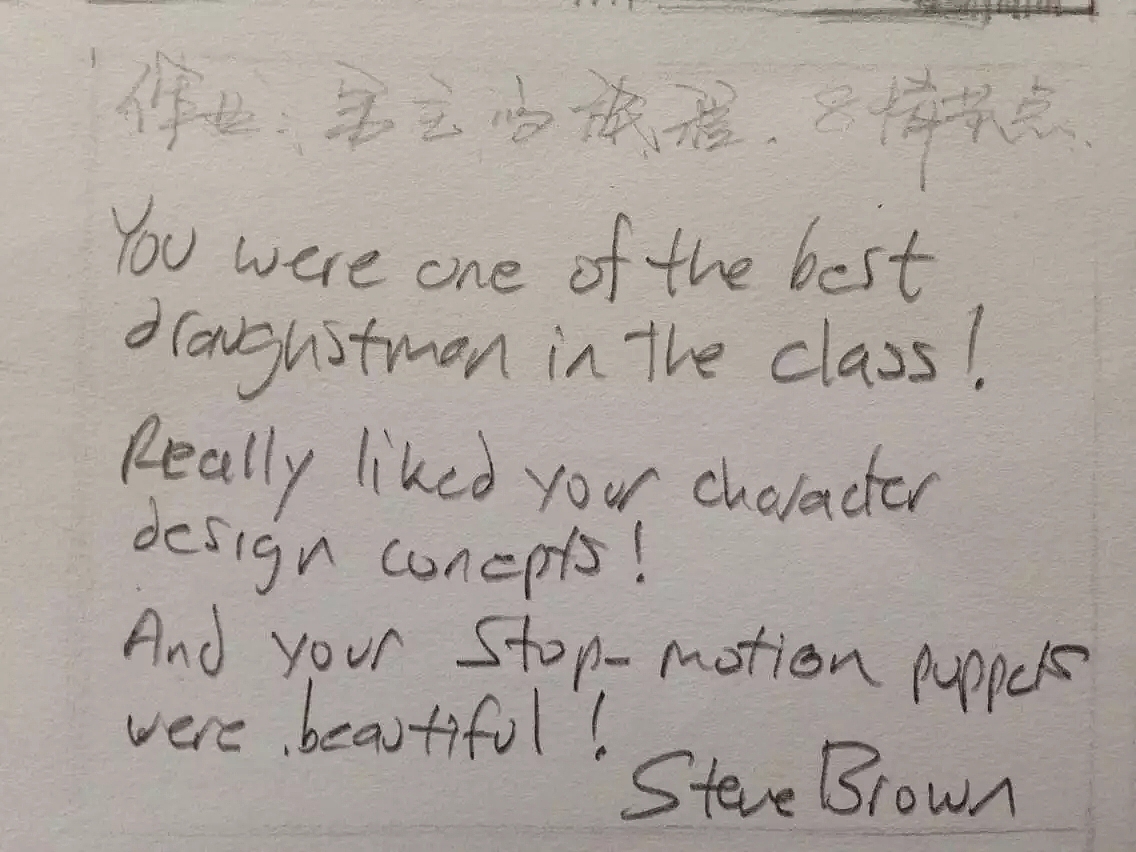 作业:
You were one of the best
draughstman in the class!
Really liked your character
design concepts!
And your Stop-motion puppets
were beautiful!
Steve Brown